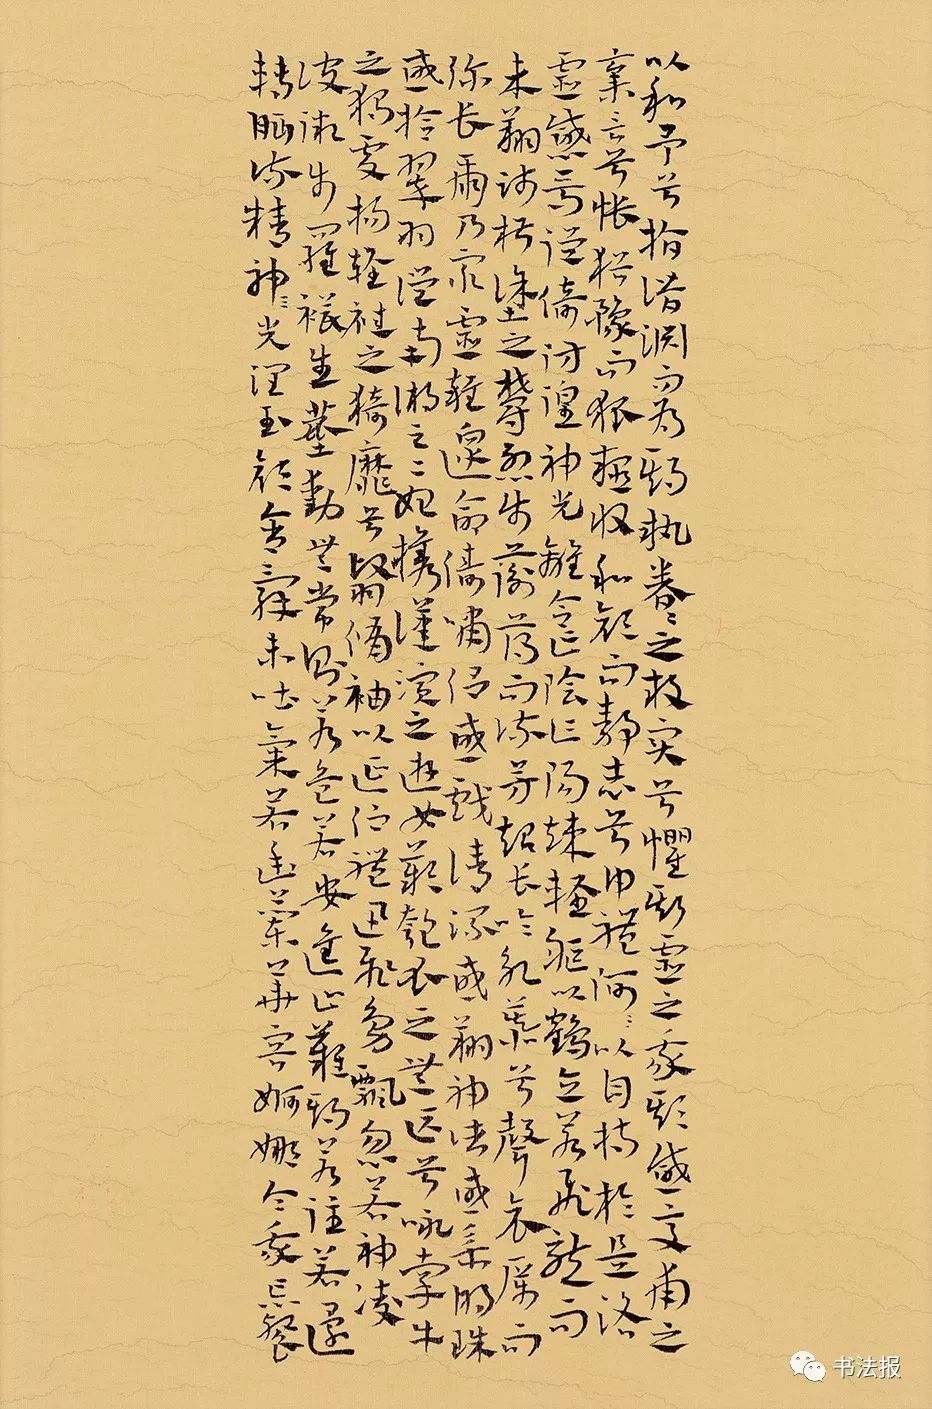 以和予兮指潛淵而為期執眷〻之款實兮懼斯靈之我欺感交甫之
棄言兮悵猶豫而狐疑收和顏而靜志兮申禮防〻以自持於是洛
靈感焉徙倚彷徨神光離合乍陰乍陽竦輕軀以鶴立若飛龍而
未翔踐椒塗之鬱烈步蘅薄而流芳超長吟以永慕兮聲哀厲而
彌長爾乃眾靈雜遝命儔嘯侶或戲清流或翔神渚或采明珠
或拾翠羽從南湘之二妃攜漢濱之遊女歎匏瓜之無匹兮詠牽牛
之獨處揚輕袿之猗靡兮翳脩袖以延佇體迅飛鳧飄忽若神凌
波微步羅襪生塵動無常則若危若安進止難期若往若還
轉眄流精神〻光潤玉顏含辭未吐氣若幽蘭華容婀娜令我忘餐
书法报